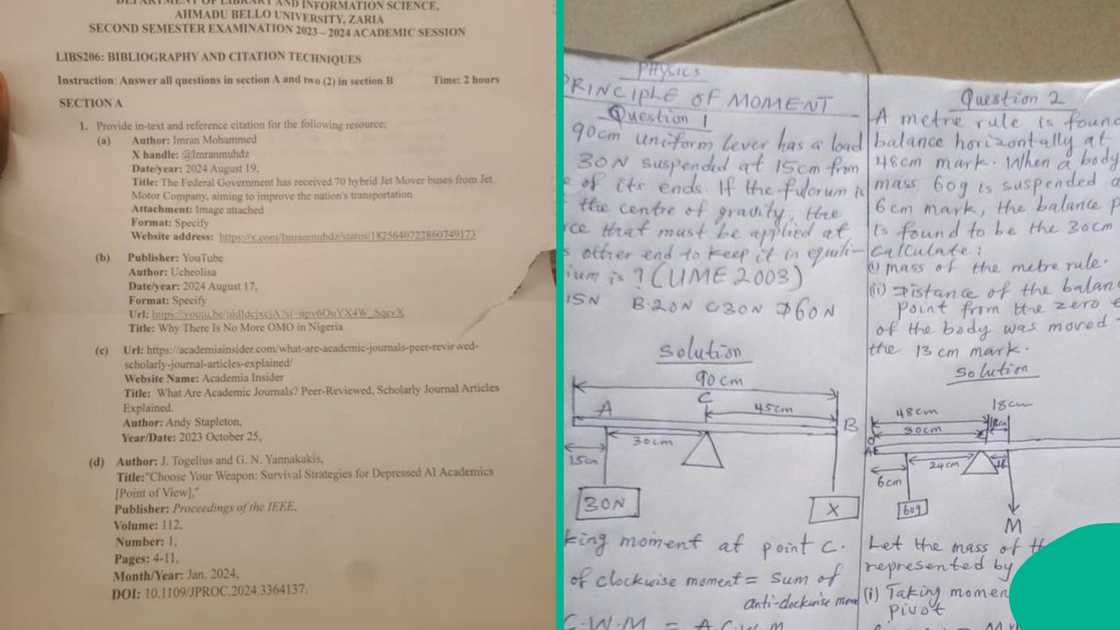 DEPARTMENT OF LIBRARY AND INFORMATION SCIENCE,
AHMADU BELLO UNIVERSITY, ZARIA
SECOND SEMESTER EXAMINATION 2023 – 2024 ACADEMIC SESSION
LIBS206: BIBLIOGRAPHY AND CITATION TECHNIQUES
Instruction: Answer all questions in section A and two (2) in section B Time: 2 hours
SECTION A
1. Provide in-text and reference citation for the following resource;
(a) Author: Imran Mohammed
X handle: @Imranmuhdz
Date/year: 2024 August 19,
Title: The Federal Government has received 70 hybrid Jet Mover buses from Jet
Motor Company, aiming to improve the nation's transportation
Attachment: Image attached
Format: Specify
Website address: https://x.com/Imranmuhdz/status/1825640722860749173
(b) Publisher: YouTube
Author: Ucheolisa
Date/year: 2024 August 17,
Format: Specify
Url:
Title: Why There Is No More OMO in Nigeria
(c) Url: https://academiainsider.com/what-are-academic-journals-peer-reviewed-
scholarly-journal-articles-explained/
Website Name: Academia Insider
Title: What Are Academic Journals? Peer-Reviewed, Scholarly Journal Articles
Explained.
Author: Andy Stapleton,
Year/Date: 2023 October 25,
(d) Author: J. Togelius and G. N. Yannakakis,
Title:"Choose Your Weapon: Survival Strategies for Depressed AI Academics
[Point of View],"
Publisher: Proceedings of the IEEE,
Volume: 112,
Number: 1,
Pages: 4-11,
Month/Year: Jan. 2024,
DOI: 10.1109/JPROC.2024.3364137.
Physics
PRINCIPLE OF MOMENT
Question 1
90cm uniform lever has a load
30N suspended at 15cm from
of its ends. If the fulcrum is
the centre of gravity, the
that must be applied at
other end to keep it in equili-
ium is? (UME 2003)
15N B.20N C.30N D.60N
Solution
90cm
C
A 45cm B
30cm
15cm
30N X
king moment at point C.
of clockwise moment = Sum of
anti-clockwise mome
C.W.M = A.C.W.M
Question 2
A metre rule is found
balance horizontally at
48cm mark. When a body
mass 60g is suspended
6cm mark, the balance p
is found to be the 30cm
Calculate:
(i) mass of the metre rule.
(ii) Distance of the balan
point from the zero
of the body was moved
the 13cm mark.
Solution
48cm 18cm
30cm
24cm
6cm
60g
M
Let the mass of th
represented by
(i) Taking momen
pivot